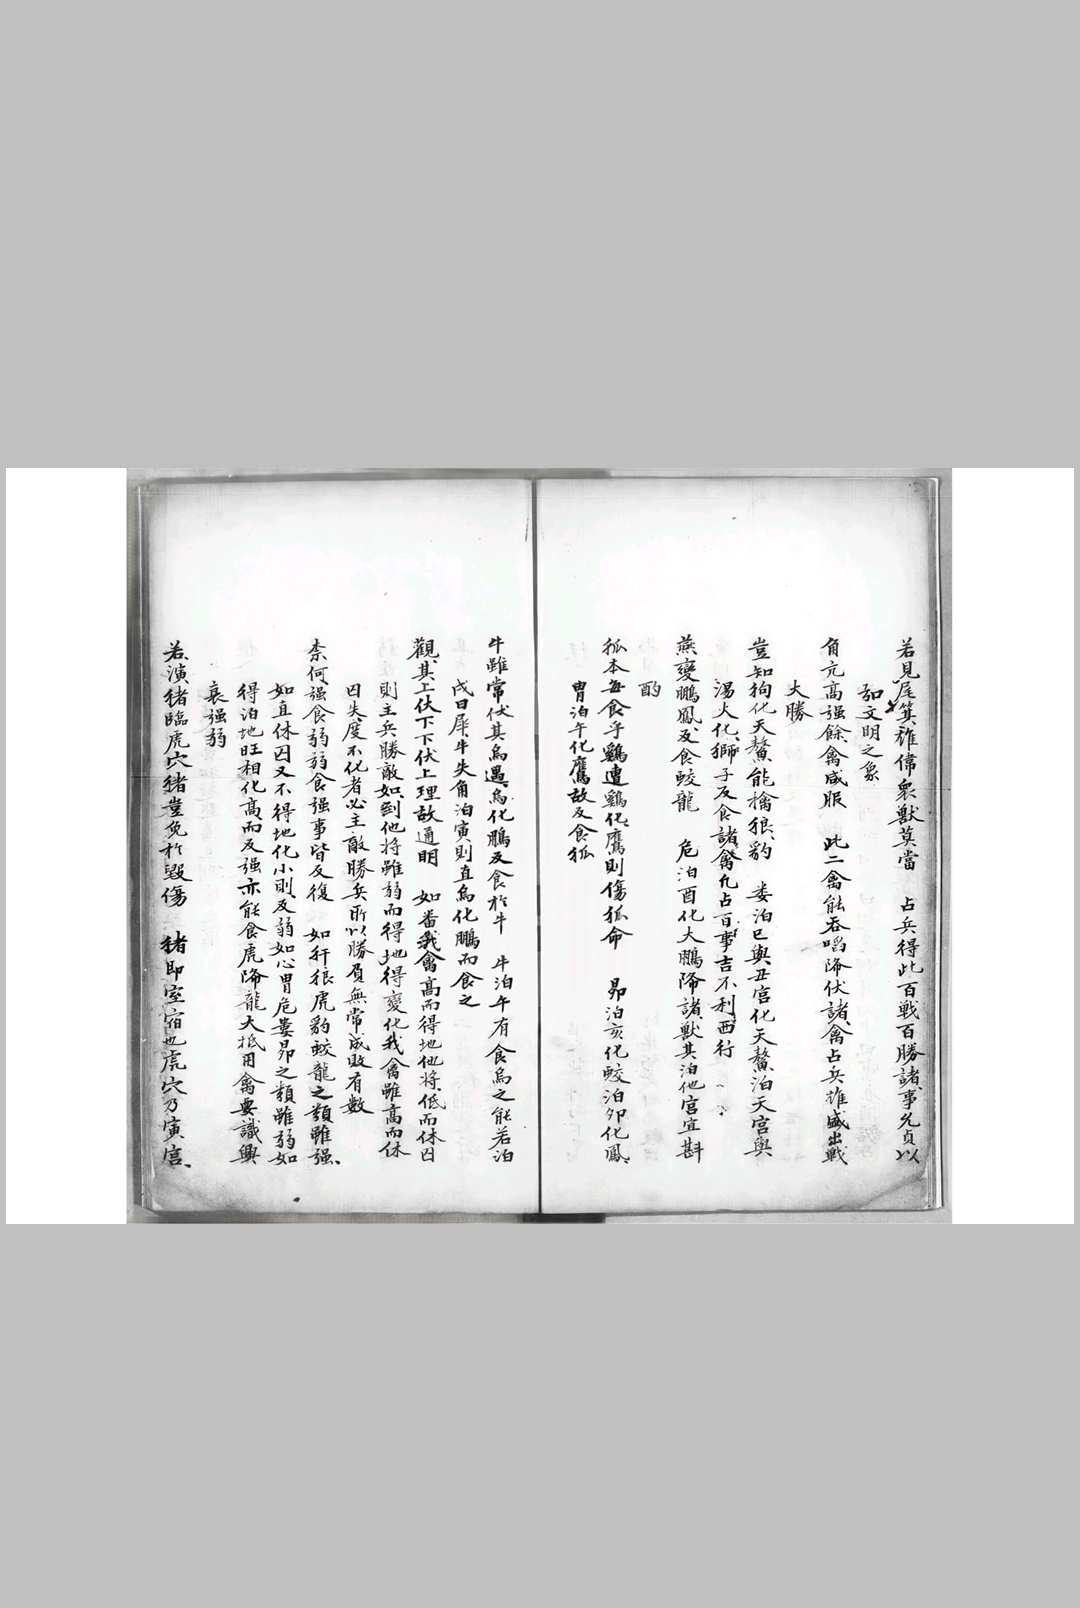 若見尾箕雄偉衆獸莫當　占兵得此百戰百勝諸事允貞以
知文明之象
角亢高強餘禽咸服　此二禽能吞啗降伏諸禽占兵雄盛出戰
大勝
豈知狗化天鰲能擒狼豹　婁泊巳與丑宮化天鰲泊天宮與
湯火化獅子反食諸禽凡占百事吉不利西行
燕變鵬鳳反食蛟龍　危泊酉化大鵬降諸獸其泊他宮宜斟
酌
狐本每食乎鷄遭鷄化鷹則傷狐命　昴泊亥化蛟泊卯化鳳
胃泊午化鷹故反食狐
牛雖常伏其烏遇烏化鵬反食於牛　牛泊午有食烏之能若泊
戌曰犀牛失角泊寅則直烏化鵬而食之
觀其上伏下下伏上理故通明　如番我禽高而得地他將低而休囚
則主兵勝敵如到他將雖弱而得地得變化我禽雖高而休
囚失度不化者必主敵勝兵所以勝負無常成敗有數
柰何強食弱弱食強事皆反復　如犴狼虎豹蛟龍之類雖強
如直休囚又不得地化小則反弱如心胃危婁昴之類雖弱如
得泊地旺相化高而反強亦能食虎降龍大抵用禽要識興
衰強弱
若演猪臨虎穴猪豈免於毀傷　猪即室宿也虎穴乃寅宮